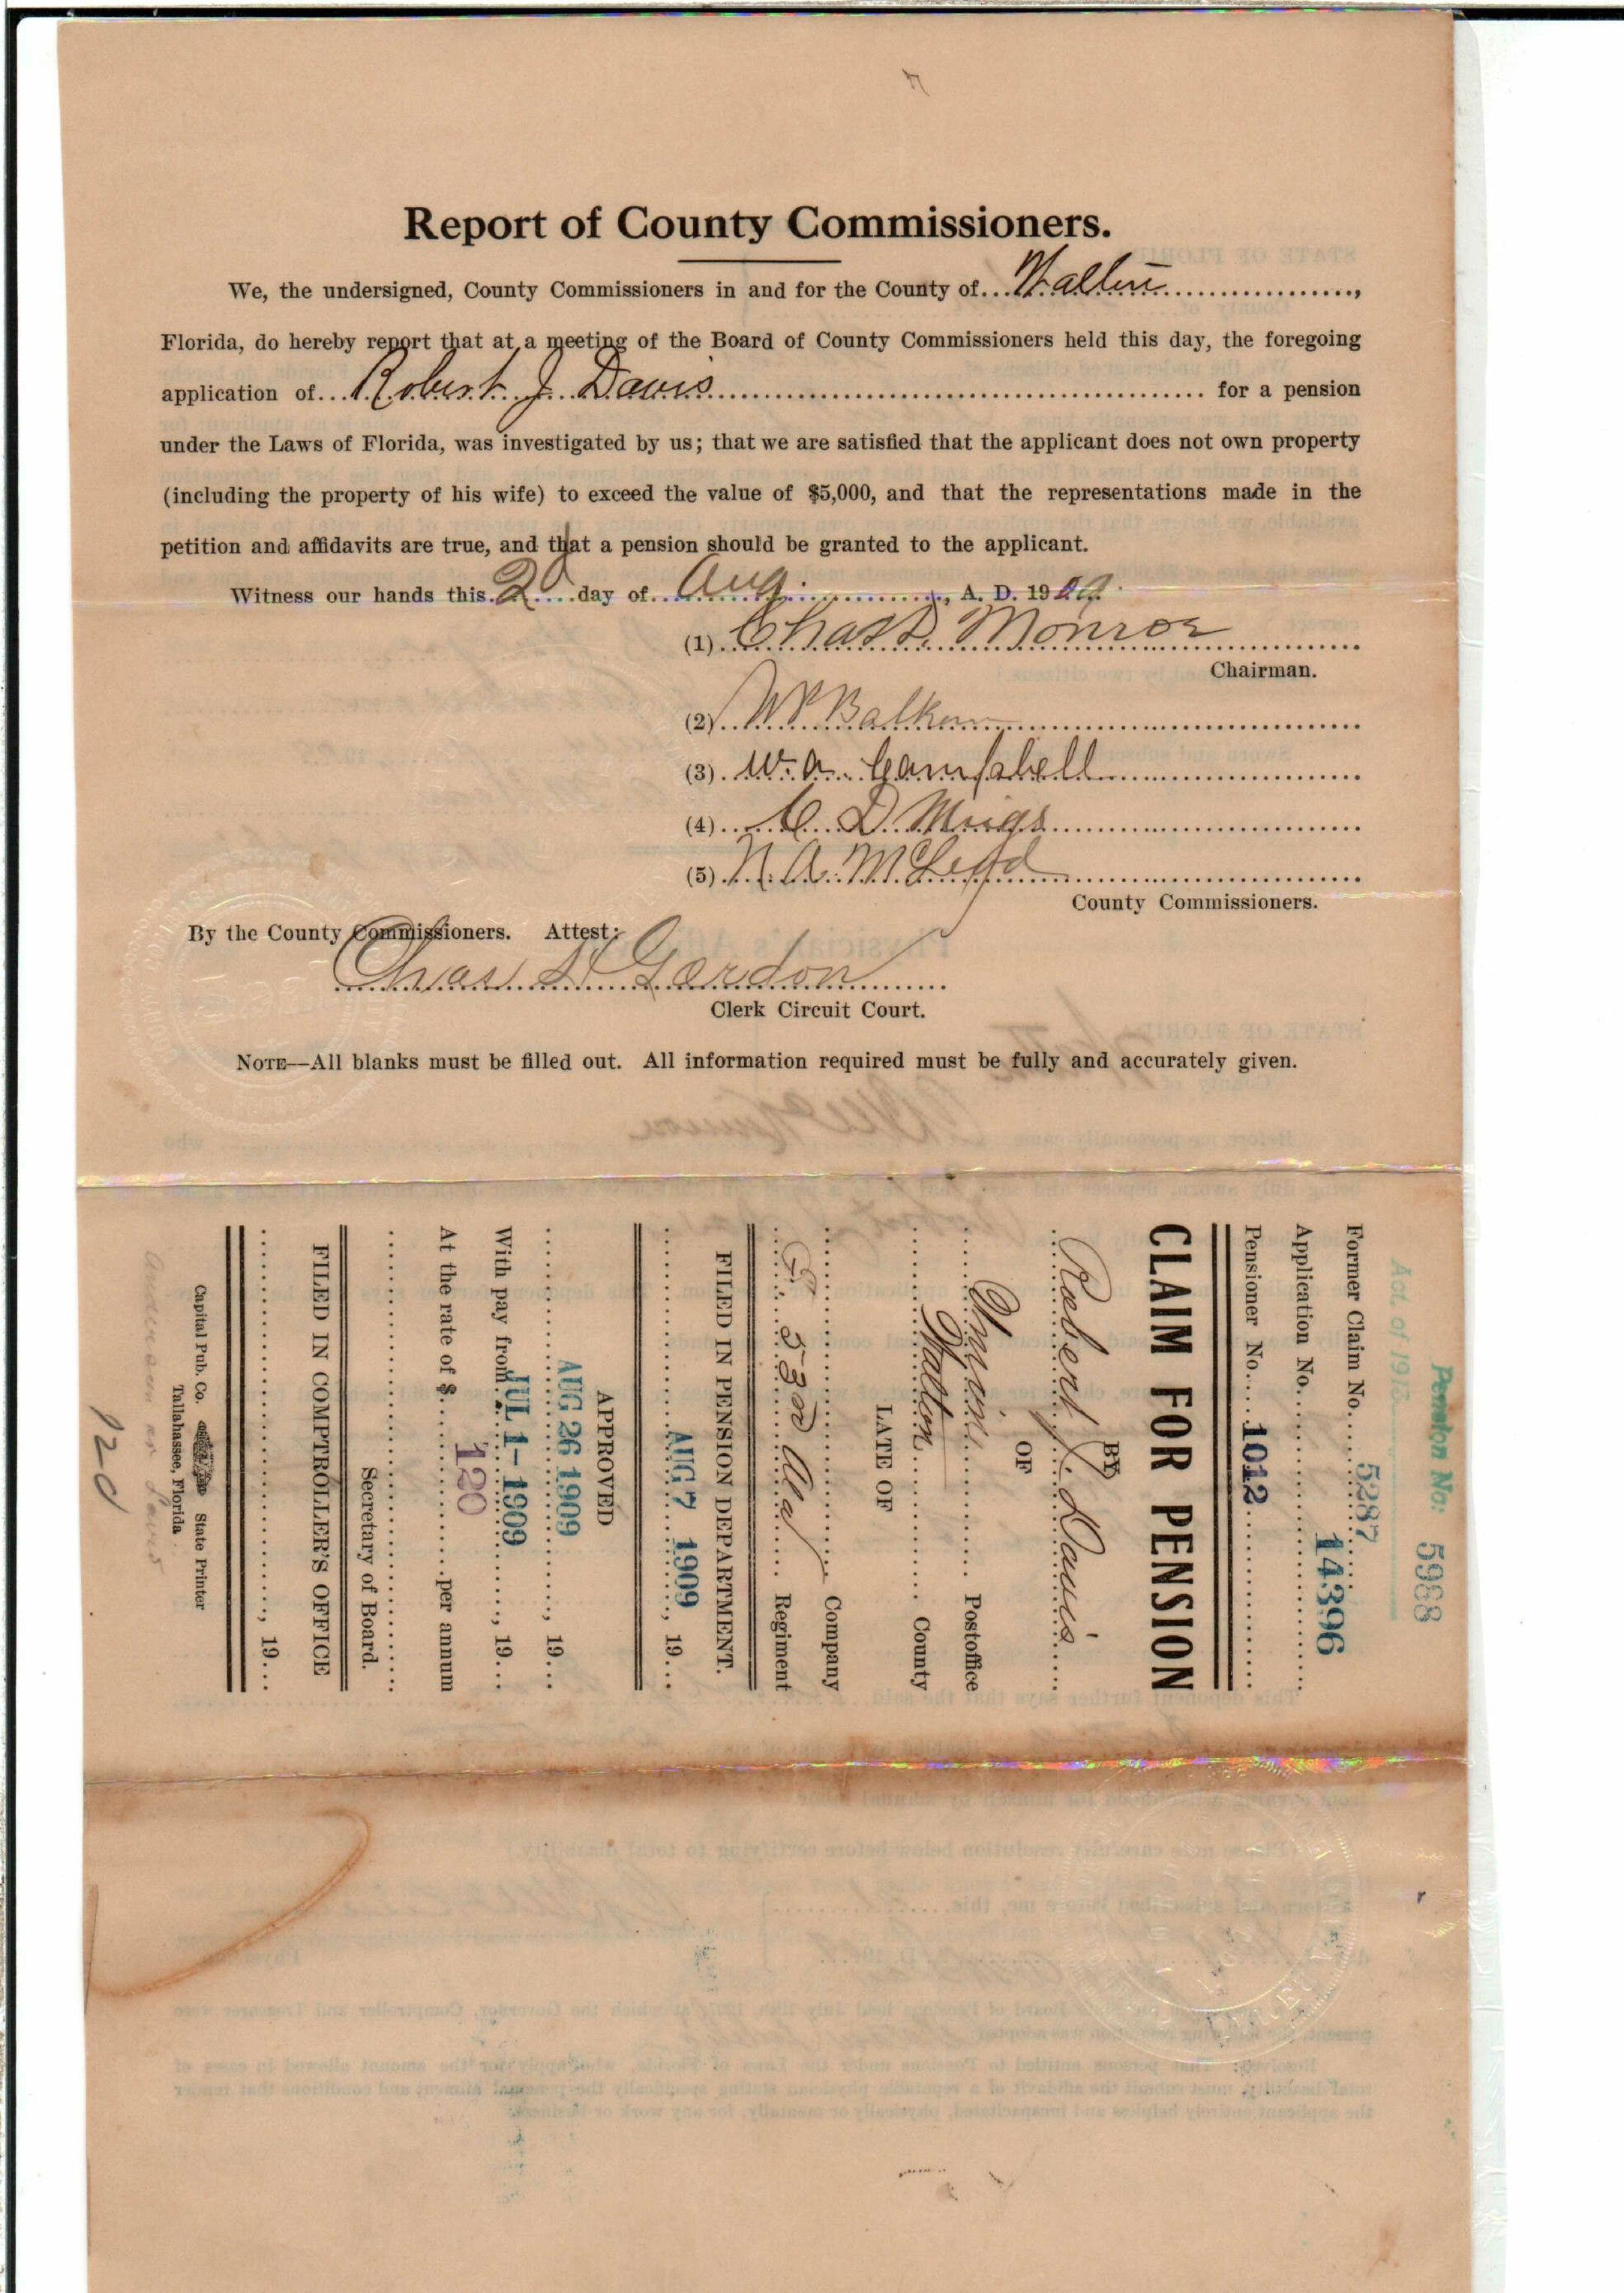 Report of County Commissioners.
We, the undersigned, County Commissioners in and for the County of Walton,
Florida, do hereby report that at a meeting of the Board of County Commissioners held this day, the foregoing
application of Robert J Davis for a pension
under the Laws of Florida, was investigated by us; that we are satisfied that the applicant does not own property
(including the property of his wife) to exceed the value of $5,000, and that the representations made in the
petition and affidavits are true, and that a pension should be granted to the applicant.
Witness our hands this 2d day of Aug, A. D. 1909.
(1) Chas D. Monroe
Chairman.
(2) W P Balkum
(3) W. A. Campbell
(4) C D Meigs
(5) N. A. McLeod
County Commissioners.
By the County Commissioners. Attest:
Chas Gordon
Clerk Circuit Court.
NOTE—All blanks must be filled out. All information required must be fully and accurately given.
Act of 1915
Pension No: 5988
Former Claim No. 5287
Application No. 14396
Pensioner No. 1012
CLAIM FOR PENSION
BY
Robert J. Davis
OF
Postoffice
Walton County
LATE OF
Company
G. 53rd Ala Regiment
FILED IN PENSION DEPARTMENT.
AUG 7 1909, 19
APPROVED
AUG 26 1909, 19
With pay from JUL 1-1909, 19
At the rate of $ 120 per annum
Secretary of Board.
FILED IN COMPTROLLER'S OFFICE
, 19
Capital Pub. Co. State Printer
Tallahassee, Florida
120